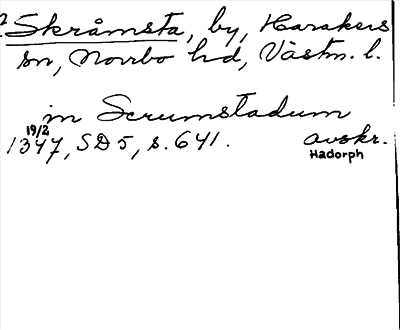 Skråmsta, by, Harakers
sn, Norrbo hd, Västm. l.
in Scrumstadum
19/2
1347, SD 5, s. 641. avskr.
Hadorph